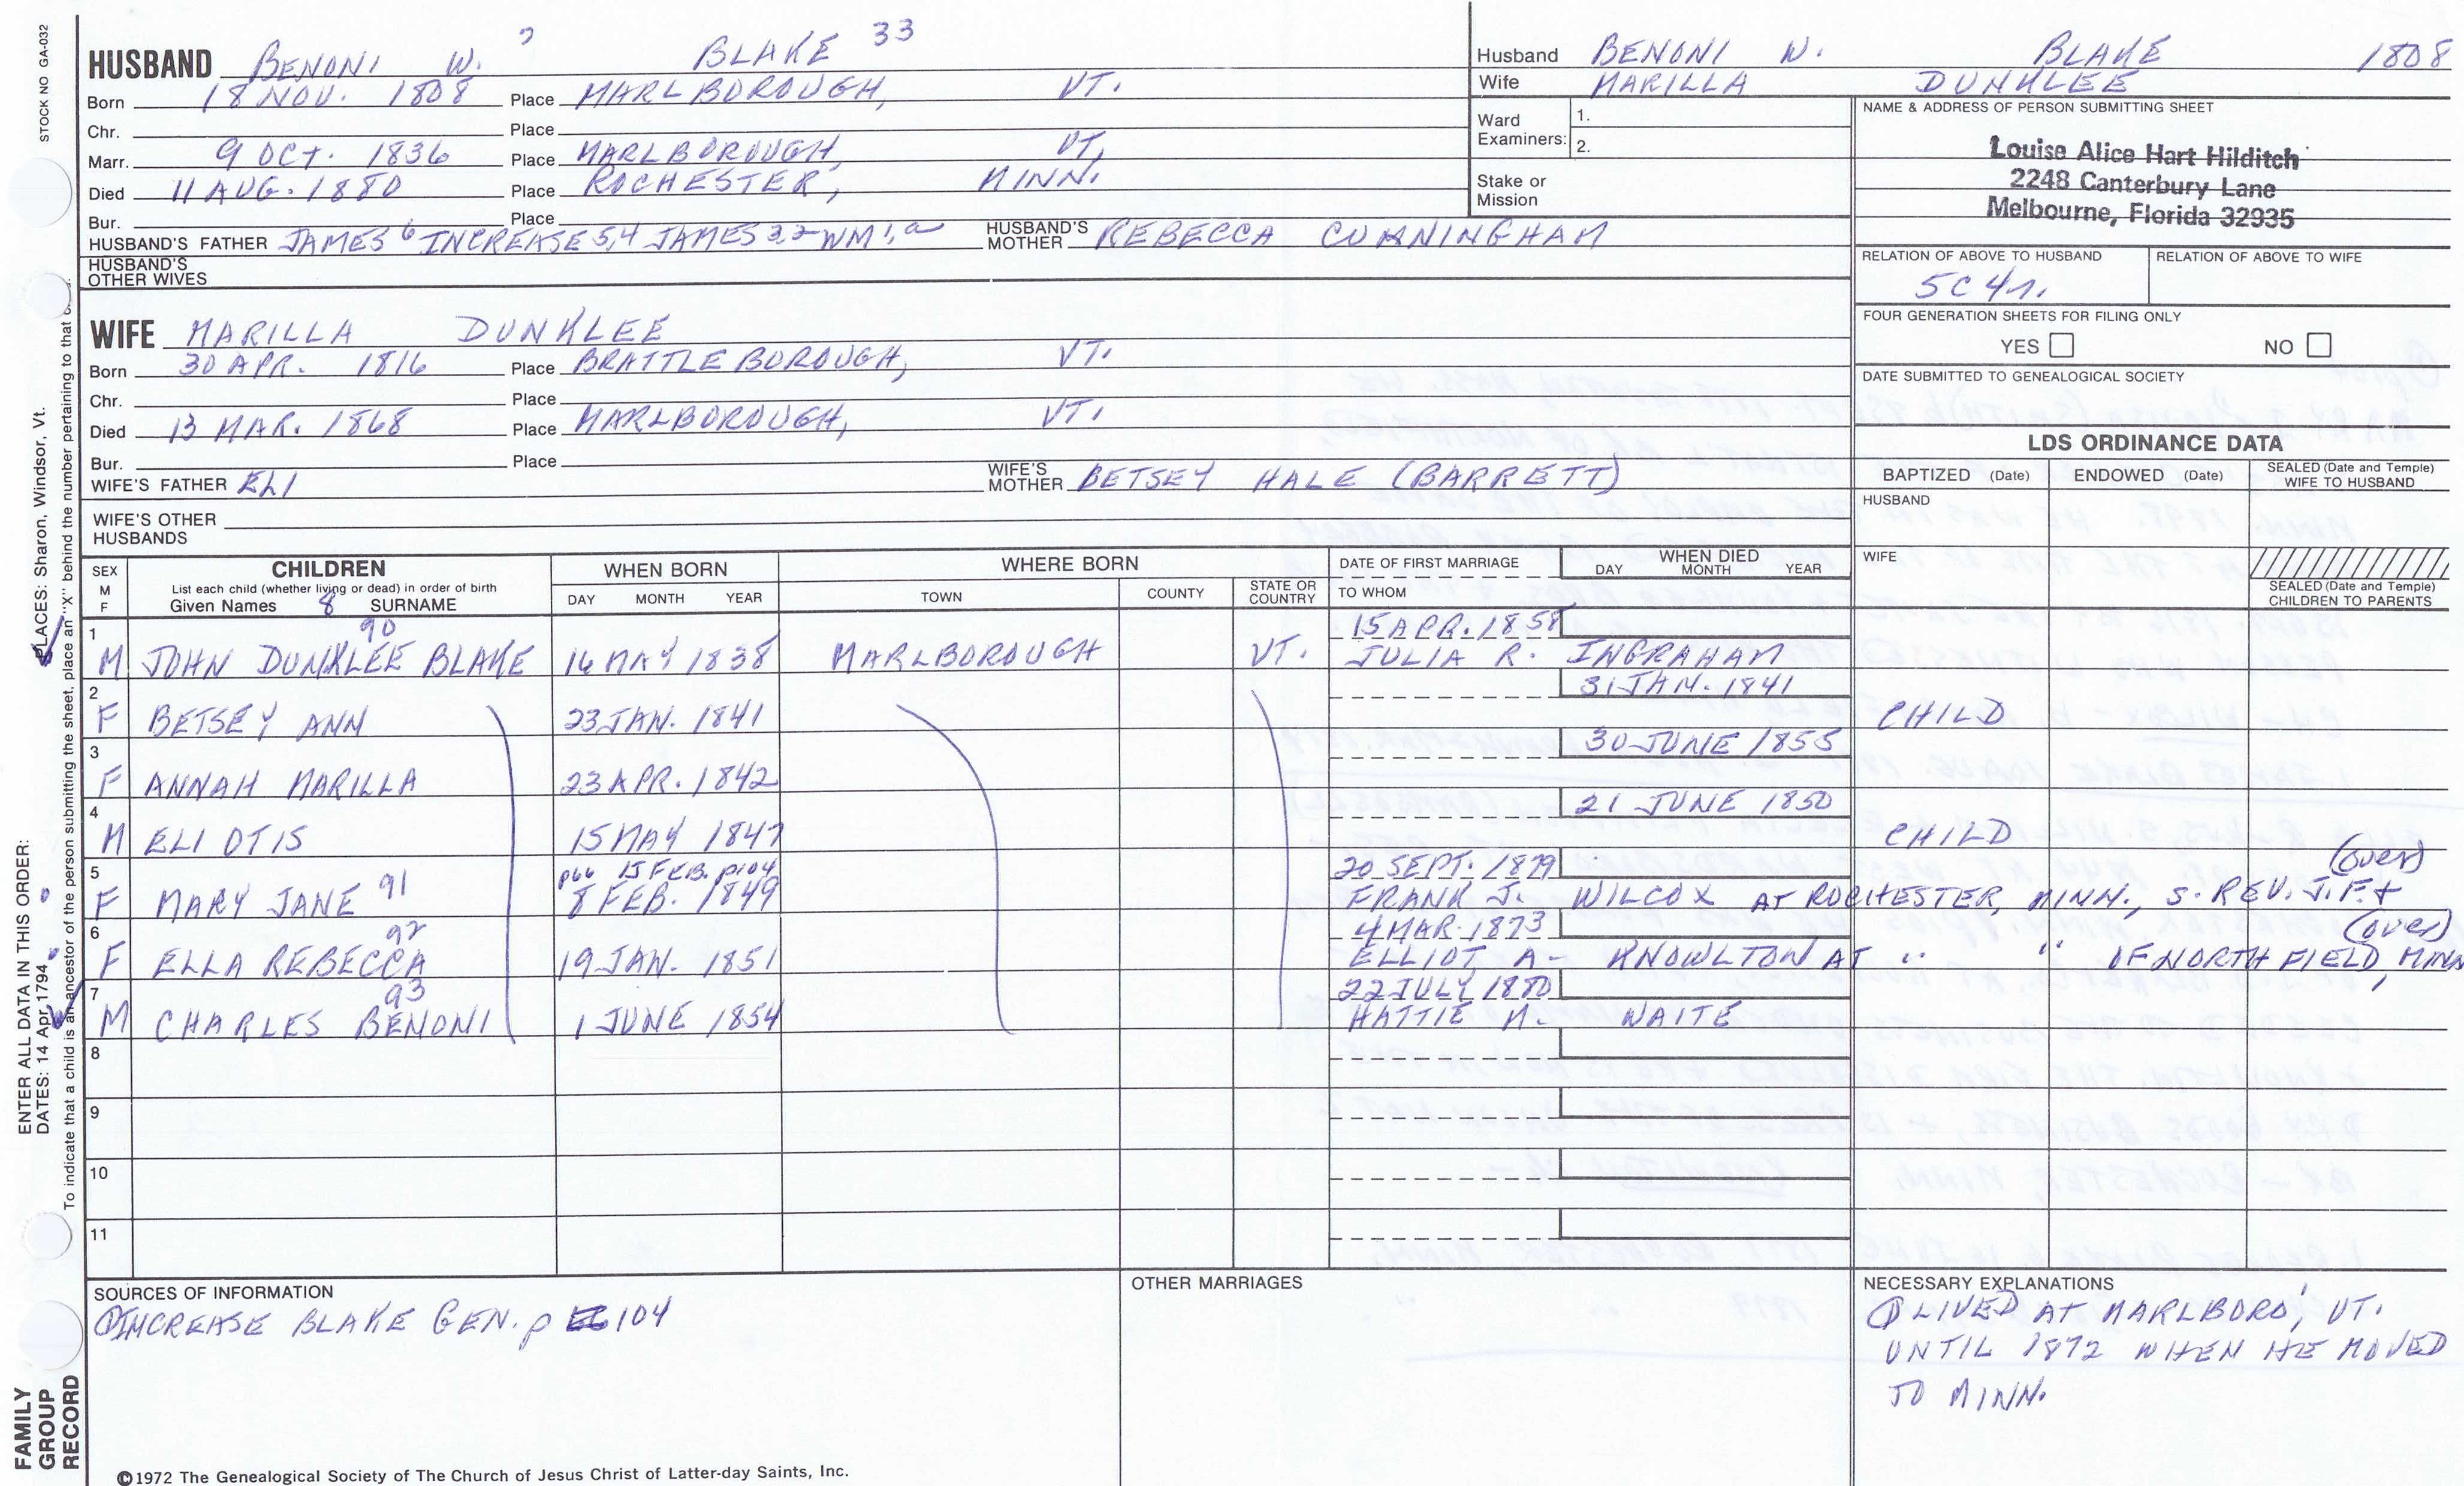 STOCK NO GA-032
HUSBAND BENONI W. 7 BLAKE 33
Born 18 NOV. 1808 Place MARLBOROUGH, VT.
Chr. Place
Marr. 9 OCT. 1836 Place MARLBOROUGH, VT.
Died 11 AUG. 1880 Place ROCHESTER, MINN.
Bur. Place
HUSBAND'S FATHER JAMES 6 INCREASE 5,4 JAMES 3,2 WM 1, a HUSBAND'S MOTHER REBECCA CUNNINGHAM
HUSBAND'S OTHER WIVES
WIFE MARILLA DUNKLEE
Born 30 APR. 1816 Place BRATTLEBOROUGH, VT.
Chr. Place
Died 13 MAR. 1868 Place MARLBOROUGH, VT.
Bur. Place
WIFE'S FATHER ELI WIFE'S MOTHER BETSEY HALE (BARRETT)
WIFE'S OTHER HUSBANDS
Husband BENONI W. BLAKE 1808
Wife MARILLA DUNKLEE
Ward Examiners: 1.
2.
Stake or Mission
NAME & ADDRESS OF PERSON SUBMITTING SHEET
Louise Alice Hart Hilditch
2248 Canterbury Lane
Melbourne, Florida 32935
RELATION OF ABOVE TO HUSBAND RELATION OF ABOVE TO WIFE
5C4r.
FOUR GENERATION SHEETS FOR FILING ONLY
YES NO
DATE SUBMITTED TO GENEALOGICAL SOCIETY
LDS ORDINANCE DATA
BAPTIZED (Date) ENDOWED (Date) SEALED (Date and Temple) WIFE TO HUSBAND
HUSBAND
WIFE
SEALED (Date and Temple) CHILDREN TO PARENTS
SEX M F CHILDREN WHEN BORN WHERE BORN DATE OF FIRST MARRIAGE WHEN DIED
List each child (whether living or dead) in order of birth DAY MONTH YEAR
Given Names 8 SURNAME DAY MONTH YEAR TOWN COUNTY STATE OR COUNTRY TO WHOM
1 90 15 APR. 1858
M JOHN DUNKLEE BLAKE 16 MAY 1838 MARLBOROUGH VT. JULIA R. INGRAHAM
2 31 JAN. 1841
F BETSEY ANN 23 JAN. 1841 CHILD
3 30 JUNE 1855
F ANNAH MARILLA 23 APR. 1842
4 21 JUNE 1850
M ELI OTIS 15 MAY 1847 CHILD
5 p66 15 FEB. p104 20 SEPT. 1879 (over)
F MARY JANE 91 8 FEB. 1849 FRANK J. WILCOX AT ROCHESTER, MINN., S. REV. J. F. +
6 92 4 MAR. 1873 (over)
F ELLA REBECCA 19 JAN. 1851 ELLIOT A- KNOWLTON AT " " OF NORTHFIELD, MINN
7 93 22 JULY 1880
M CHARLES BENONI 1 JUNE 1854 HATTIE M. WAITE
8
9
10
11
SOURCES OF INFORMATION
① INCREASE BLAKE GEN. p 104
OTHER MARRIAGES
NECESSARY EXPLANATIONS
① LIVED AT MARLBORO', VT.
UNTIL 1872 WHEN HE MOVED
TO MINN.
©1972 The Genealogical Society of The Church of Jesus Christ of Latter-day Saints, Inc.
FAMILY GROUP RECORD
ENTER ALL DATA IN THIS ORDER:
DATES: 14 Apr 1794 PLACES: Sharon, Windsor, Vt.
To indicate that a child is an ancestor of the person submitting the sheet, place an "X" behind the number pertaining to that